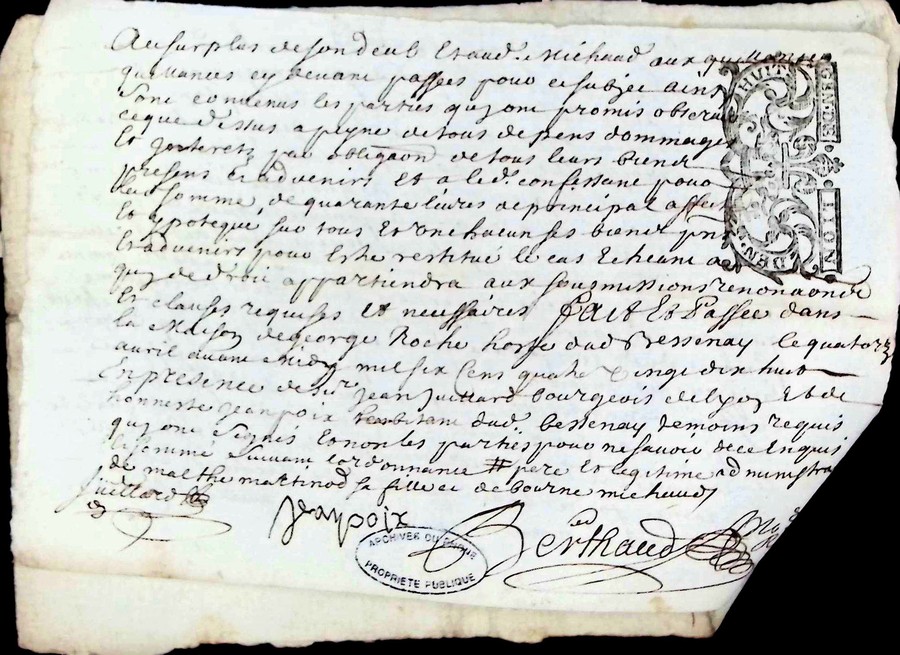 Au surplus de son deub Et aud. Michaud aux quittances
quittances cy devant passées pour ce subjec ains
sont convenus les parties quy ont promis observe
ce que dessus a peyne de tous depens dommages
Et Interetz par obligaon de tous leurs biens
presens Et advenirs Et a led. confessant pour
lad. somme de quarante livres de principal affect
Et ypotequé sur tous Et un chacun ses biens pns
Et advenirs pour Estre restitué le cas Echeant a
quy de droit appartiendra aux sousmissions renonaons
Et clauses requises Et necessaires fait Et Passée dans
la Maison de George Roche hoste dud Bressenay le quatorze
avril avant Midy mil six Cens quatre vingt dix huit
En presence de sir Jean Juillard bourgeois de lyon Et de
honneste Jean poix habitant dud. bessenay temoins requis
quy ont signés Et non les parties pour ne savoir de ce Enquis
Et sommé suivant l'ordonnance # pere Et legitime administra
de malthe martinod sa fille et de bourne michaud
Juillard
Jean poix
Berthaud
HUIT
DEN.
GENER
LION
ARCHIVES DU RHÔNE
PROPRIETE PUBLIQUE